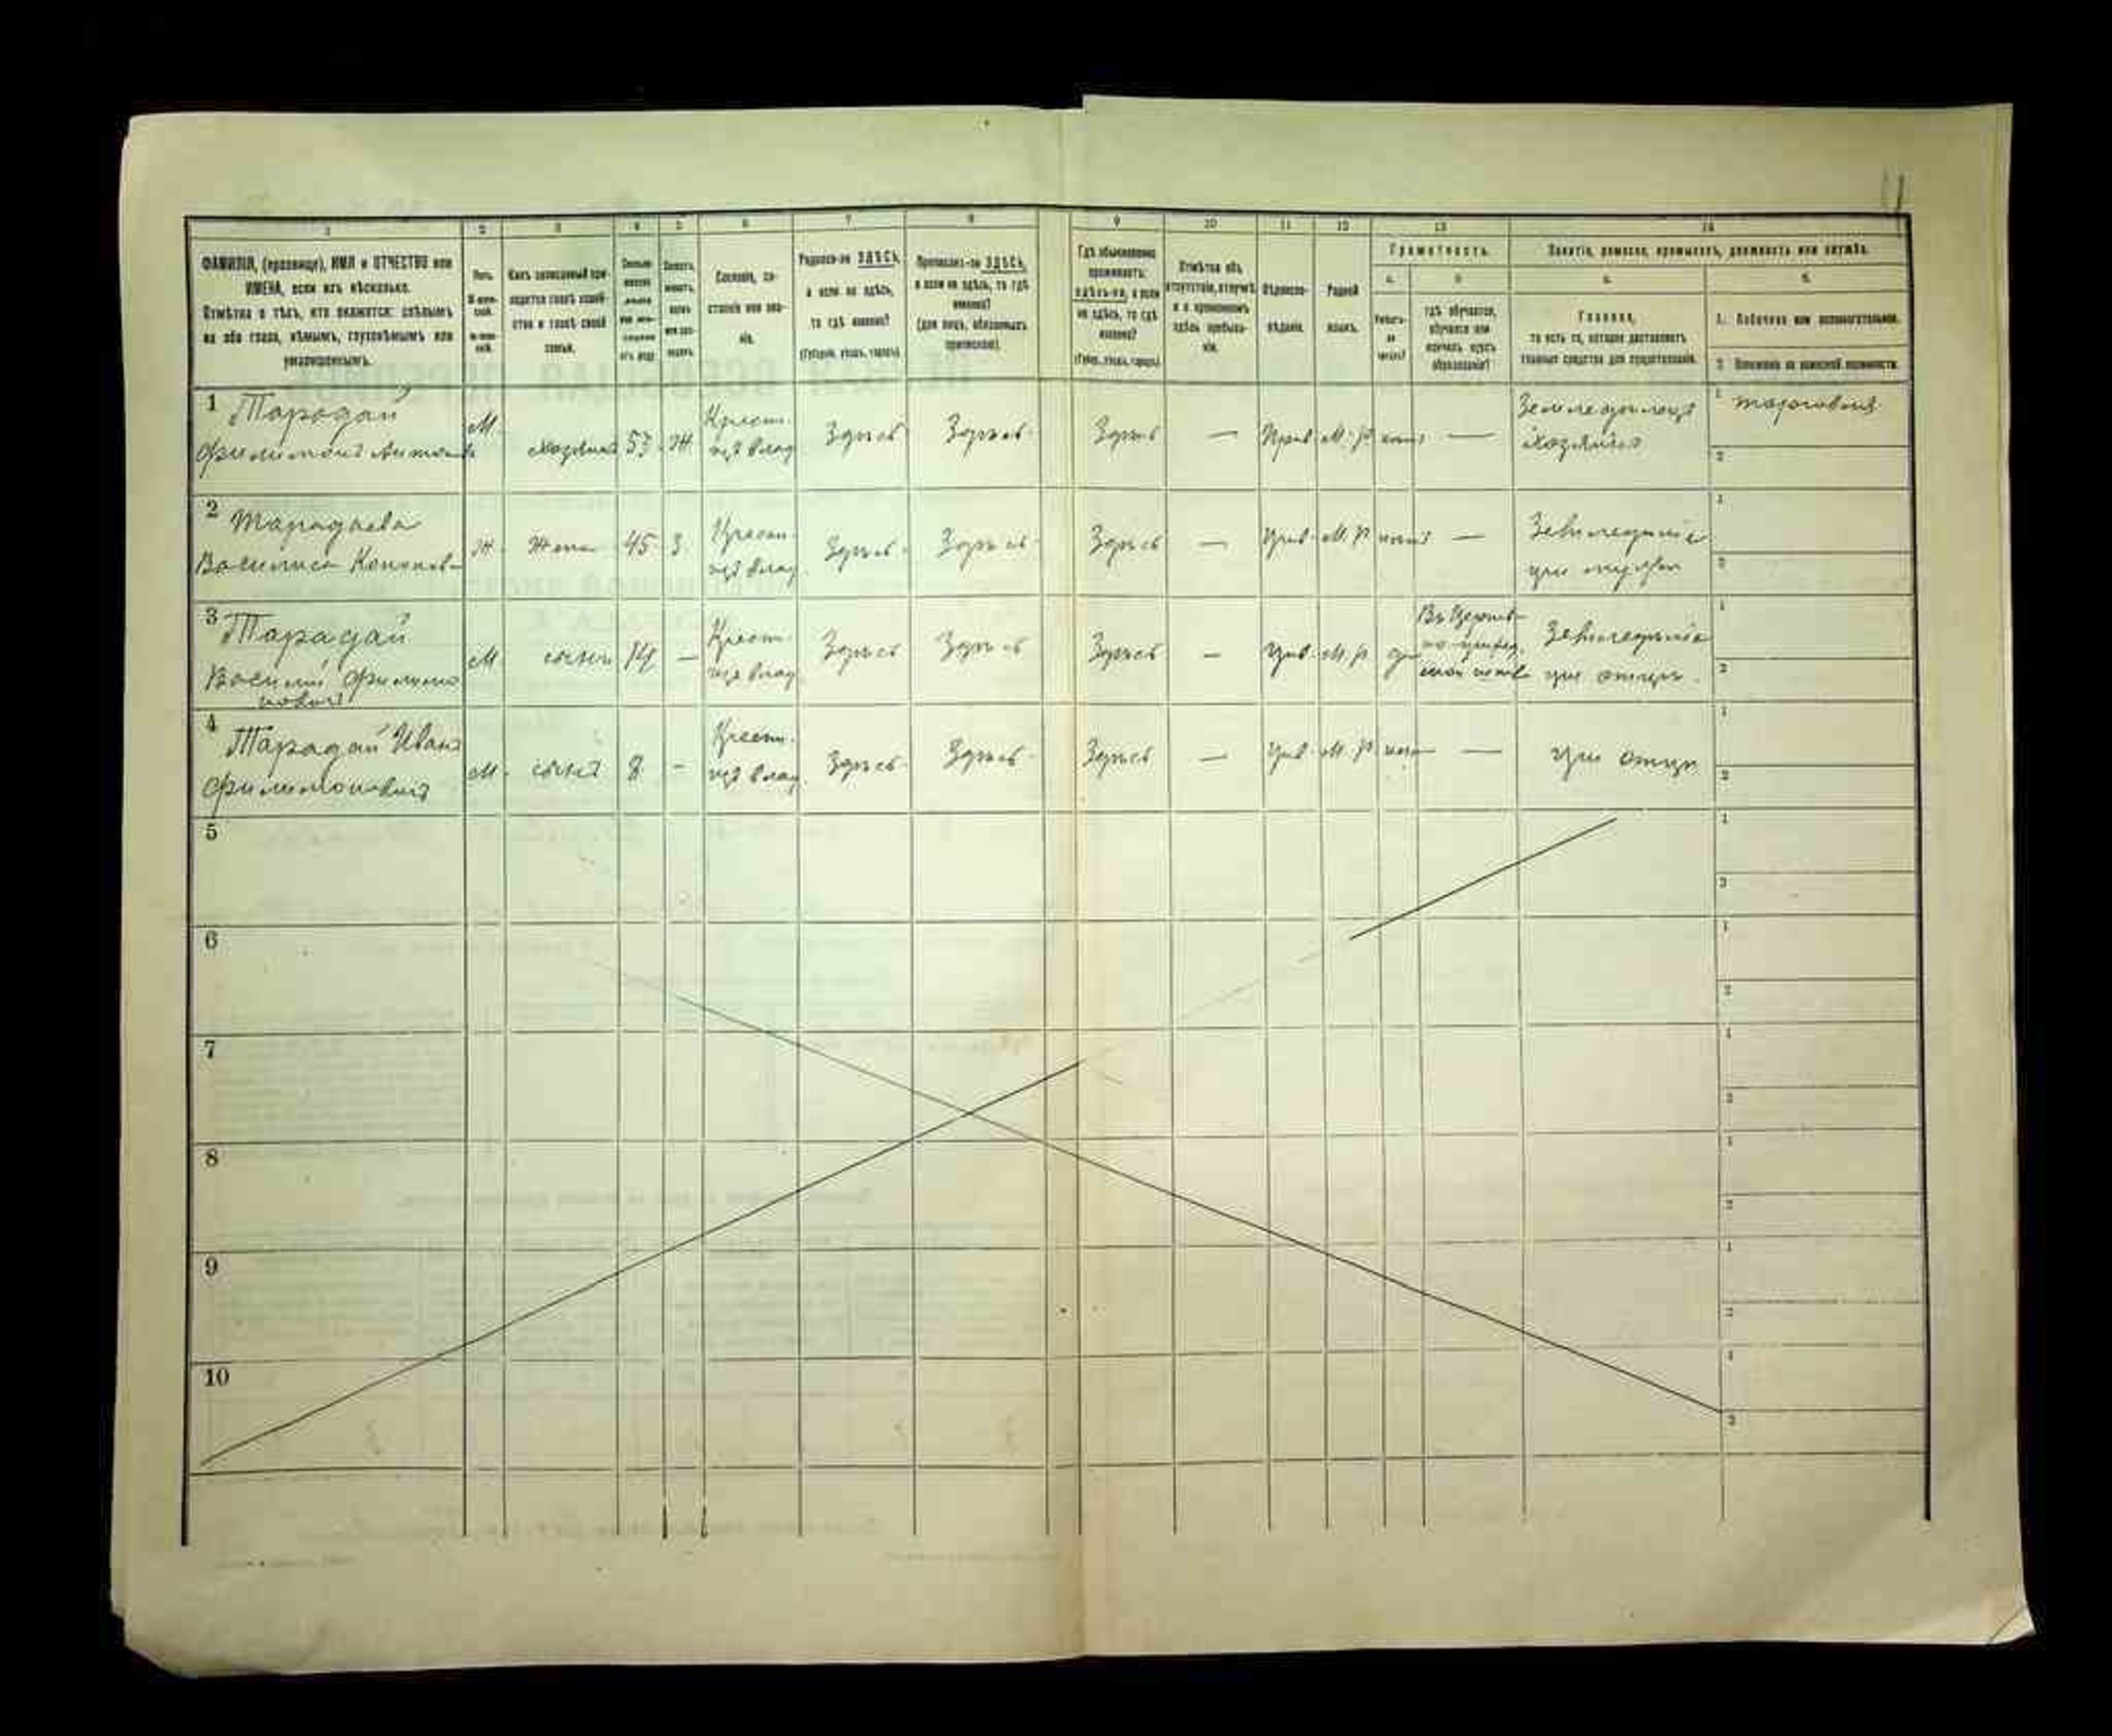 1 2 3 4 5 6 7 8 9 10 11 12 13 14
ФАМИЛІЯ, (прозвище), ИМЯ и ОТЧЕСТВО или
ИМЕНА, если ихъ нѣсколько.
Отмѣтка о тѣхъ, кто окажется: слѣпымъ
на оба глаза, нѣмымъ, глухонѣмымъ или
умалишеннымъ.
Полъ.
Какъ записанный при-
ходится главѣ хозяй-
ства и главѣ своей
семьи.
Сословіе, со-
стояніе или зва-
ніе.
Родился-ли ЗДѢСЬ,
а если не здѣсь,
то гдѣ именно?
(Губернія, уѣздъ, городъ)
Приписанъ-ли ЗДѢСЬ,
а если не здѣсь, то гдѣ
именно?
(для лицъ, обязанныхъ
припискою).
Гдѣ обыкновенно
проживаетъ:
здѣсь-ли, а если
не здѣсь, то гдѣ
именно?
(Губер., уѣздъ, городъ)
Отмѣтка объ
отсутствіи, отлучкѣ
и о временномъ
здѣсь пребыва-
ніи.
Вѣроиспо-
вѣданіе.
Родной
языкъ.
Грамотность.
а. б.
Умѣетъ-
ли
читать?
гдѣ обучается,
обучался или
кончилъ курсъ
образованія?
Занятіе, ремесло, промыселъ, должность или служба.
а. б.
Главное,
то есть то, которое доставляетъ
главныя средства для существованія.
1. Побочное или вспомогательное.
2. Положеніе по воинской повинности.
1 Тарадай
Филимонъ Антоновъ М. хозяинъ 53 Ж Крест. изъ влад. Здѣсь Здѣсь Здѣсь — Прав М.Р. нѣтъ — Земледѣлецъ хозяинъ 1 торговля
2
2 Тарадаева
Василиса Кононова Ж. Жена 45 З Крест. изъ влад. Здѣсь Здѣсь Здѣсь — Прав М.Р. нѣтъ — Земледѣліе при мужѣ 1
2
3 Тарадай
Василій Филимо
новичъ М сынъ 14 — Крест. изъ влад. Здѣсь Здѣсь Здѣсь — Прав М.Р. да Въ Церков- Земледѣліе при отцѣ 1
2
4 Тарадай Иванъ
Филимоновичъ М. сынъ 8 — Крест. изъ влад. Здѣсь Здѣсь Здѣсь — Прав М.Р. нѣтъ — при отцѣ 1
2
5 1
2
6 1
2
7 1
2
8 1
2
9 1
2
10 1
2